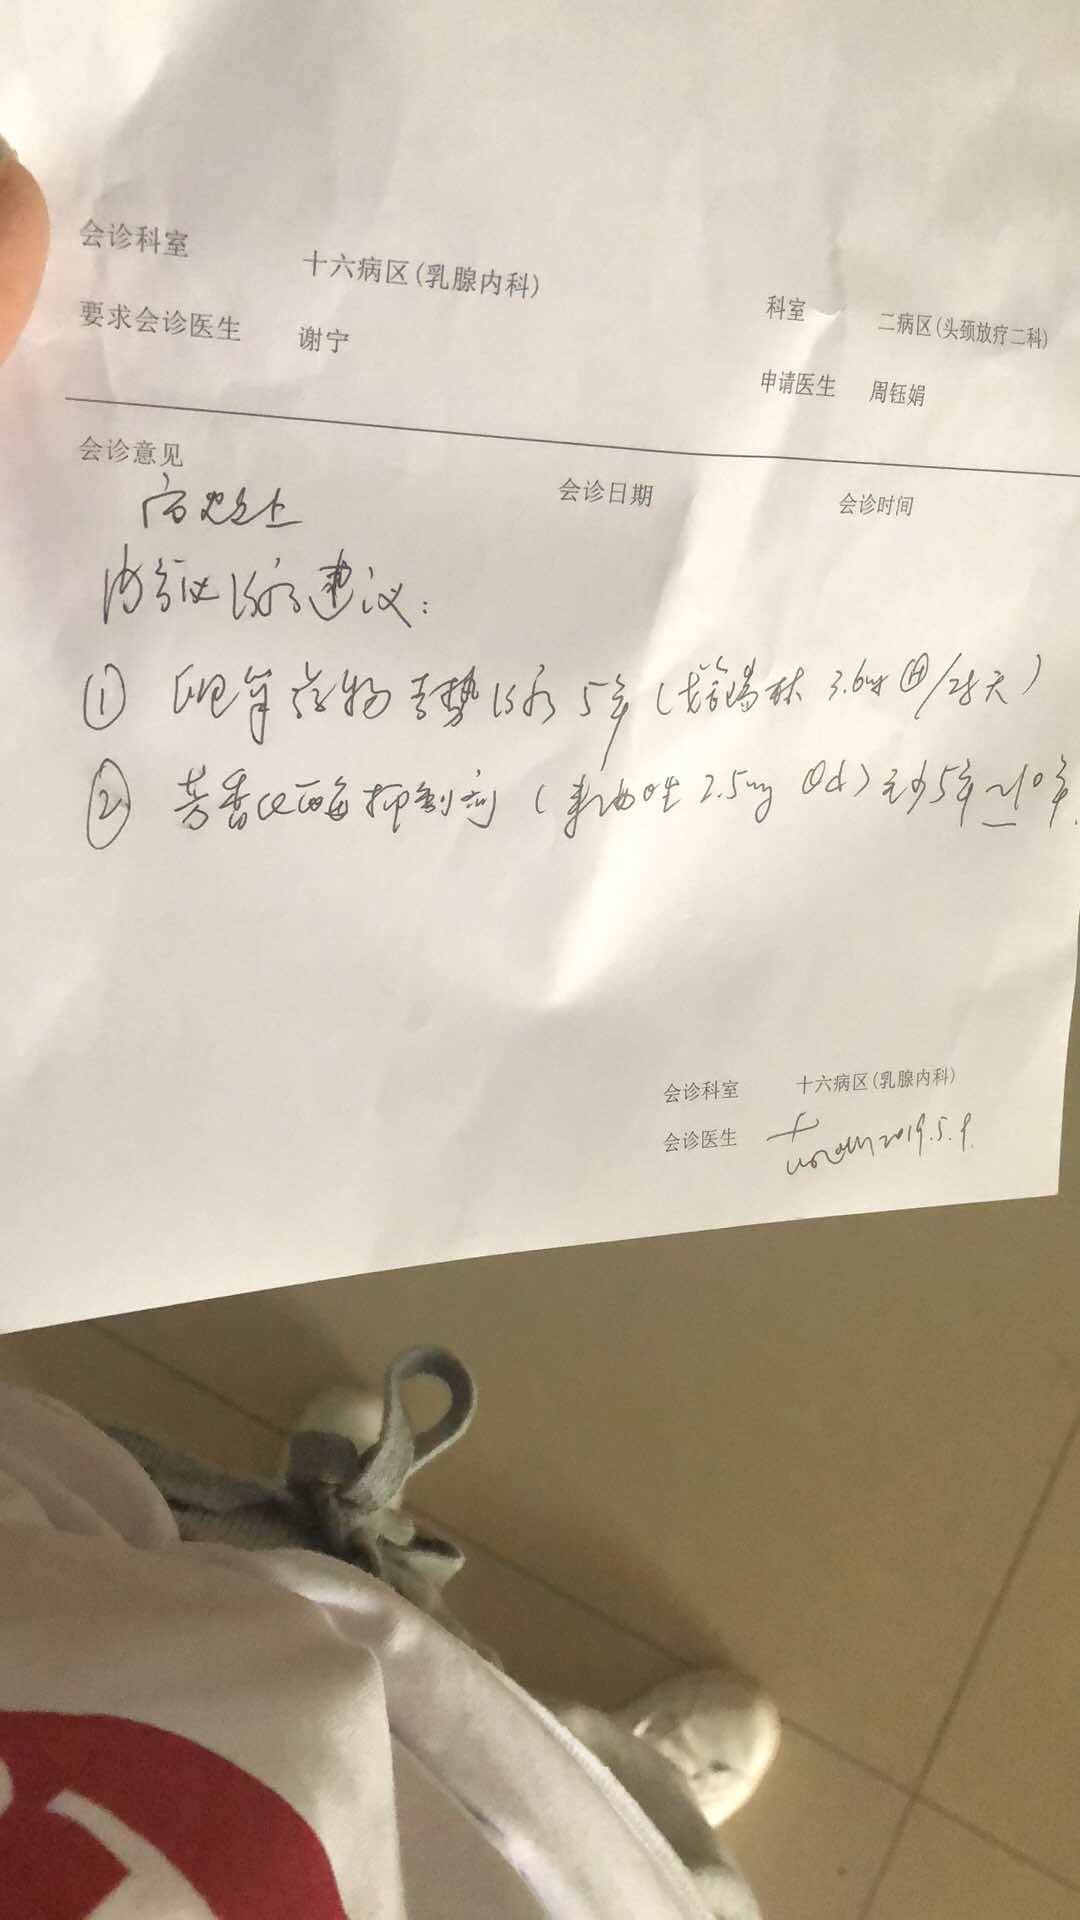 会诊科室 十六病区(乳腺内科)
科室 二病区(头颈放疗二科)
要求会诊医生 谢宁
申请医生 周钰娟
会诊意见
会诊日期 会诊时间
病史如上
内分泌治疗建议：
① 卵巢药物去势治疗5年(戈舍瑞林 3.6mg ㊊/28天)
② 芳香化酶抑制剂(来曲唑 2.5mg Qd)至少5年~10年.
会诊科室 十六病区(乳腺内科)
会诊医生 2019.5.9.